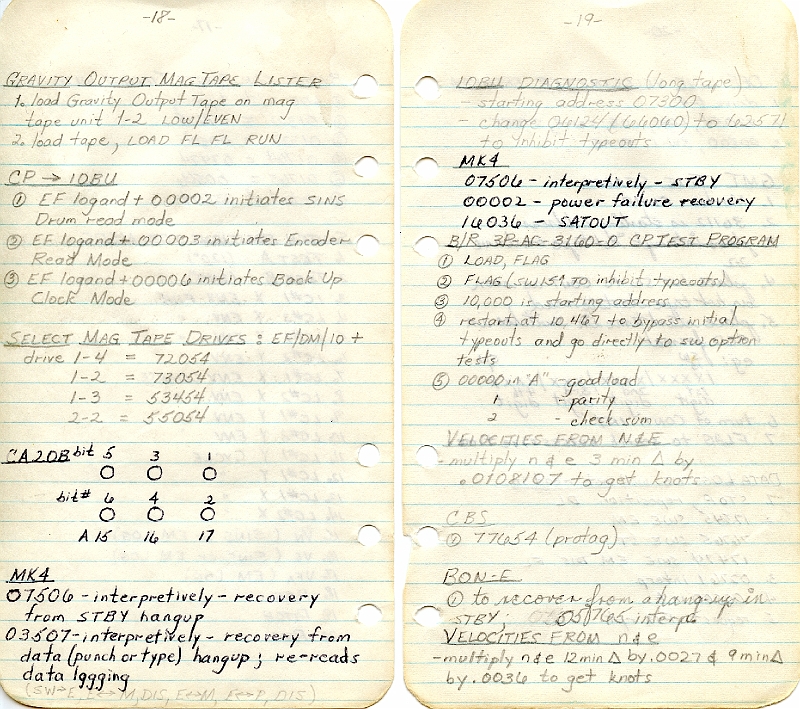 -18-
GRAVITY OUTPUT MAG TAPE LISTER
1. load Gravity Output Tape on mag
tape unit 1-2 LOW/EVEN
2. load tape, LOAD FL FL RUN
CP → IOBU
① EF logand + 00002 initiates SINS
Drum read mode
② EF logand + 00003 initiates Encoder
Read Mode
③ EF logand + 00006 initiates Back Up
Clock Mode
SELECT MAG TAPE DRIVES: EF/DM/10 +
drive 1-4 = 72054
1-2 = 73054
1-3 = 53454
2-2 = 55054
CA20B bit 5 3 1
bit# 6 4 2
A 15 16 17
MK4
07506 - interpretively - recovery
from STBY hangup
03507 - interpretively - recovery from
data (punch or type) hangup; re-reads
data lggging
(SW→E, E↔M, DIS, E↔M, E↔P, DIS)
-19-
IOBU DIAGNOSTIC (long tape)
- starting address 07300
- change 06124 (66060) to 62571
to inhibit typeouts
MK4
07506 - interpretively - STBY
00002 - power failure recovery
16036 - SATOUT
B/R 3P-AC-3160-0 CP TEST PROGRAM
① LOAD, FLAG
② FLAG (SW15↑ to inhibit typeouts)
③ 10,000 is starting address
④ restart at 10467 to bypass initial
typeouts and go directly to sw option
tests
⑤ 00000 in "A" - good load
1 - parity
2 - check sum
VELOCITIES FROM N&E
- multiply n & e 3 min Δ by
.0108107 to get knots
CBS
① 77654 (protag)
BON-E
① to recover from a hang-up in
STBY, 05765 interp.
VELOCITIES FROM n&e
- multiply n&e 12min Δ by .0027 & 9min Δ
by .0036 to get knots